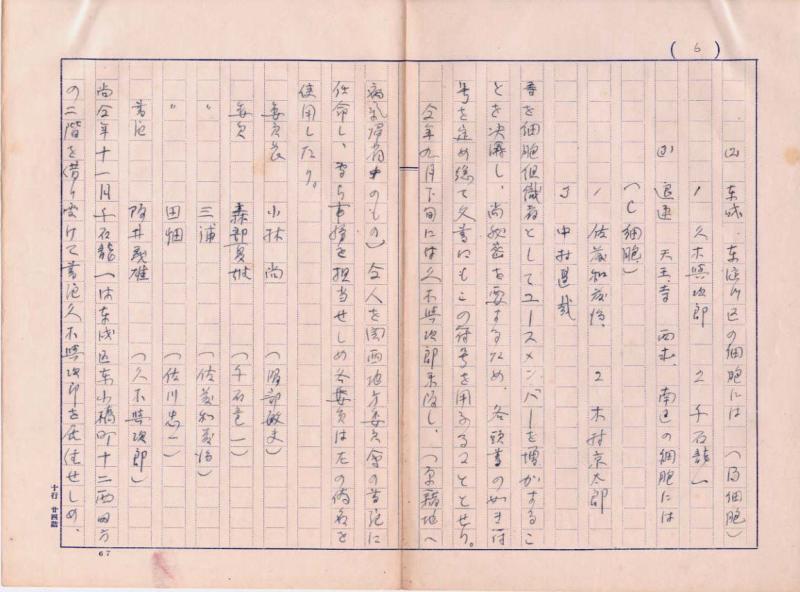 (6)
(2) 东成、东淀川区の細胞には (B細胞)
1 久木興次郎 2 千石龍一
(3) 浪速 天王寺 西成、南区の細胞には
(C細胞)
1 佐藤和藏治、 2 木村京太郎
3 中村
者を細胞組織者としてユースメンバーを増かするこ
とを決議し、尚秘密を要するため、各頭書の如き符
号を定め總て文書にもこの符号を用ふることとせり。
仝年九月下旬には久木興次郎来阪し、(原籍地へ
のもの)仝人を関西地方委員会の書記に
任命し、事務を担当せしめ各委員は左の偽名を
使用したり。
委員長 小林 尚 (服部敏丈)
委員 (千石竜一)
〃 三浦 (佐藤和藏治)
〃 田畑 (佐川忠一)
書記 阪井義雄 (久木興次郎)
尚仝年十一月千石龍一は东成区东小橋町十二西田方
の二階を借り受けて書記久木興次郎を居住せしめ、
十行 廿四詰
67